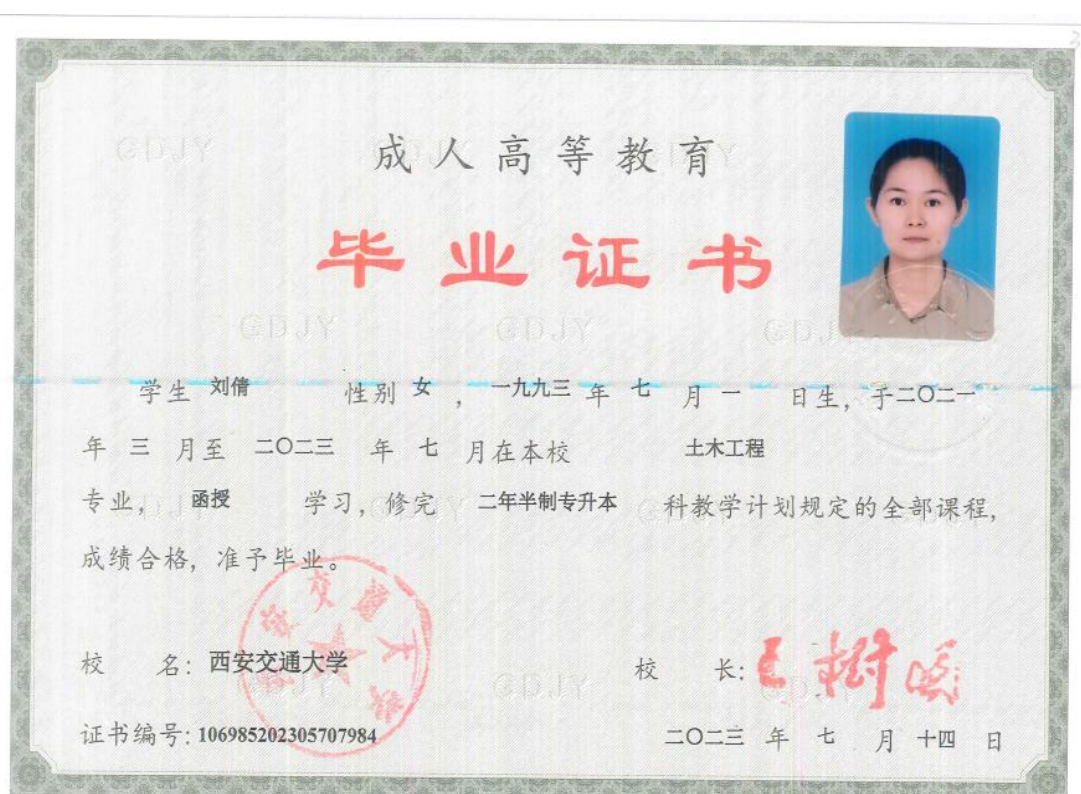 成人高等教育
毕业证书
学生 刘倩 性别 女 , 一九九三 年 七 月 一 日生, 于二〇二一
年 三 月至 二〇二三 年 七 月在本校 土木工程
专业, 函授 学习, 修完 二年半制专升本 科教学计划规定的全部课程,
成绩合格, 准予毕业。
西安交通大学
校 名: 西安交通大学 校 长: 王树国
证书编号: 106985202305707984 二〇二三 年 七 月 十四 日
GDJY
GDJY
GDJY
GDJY